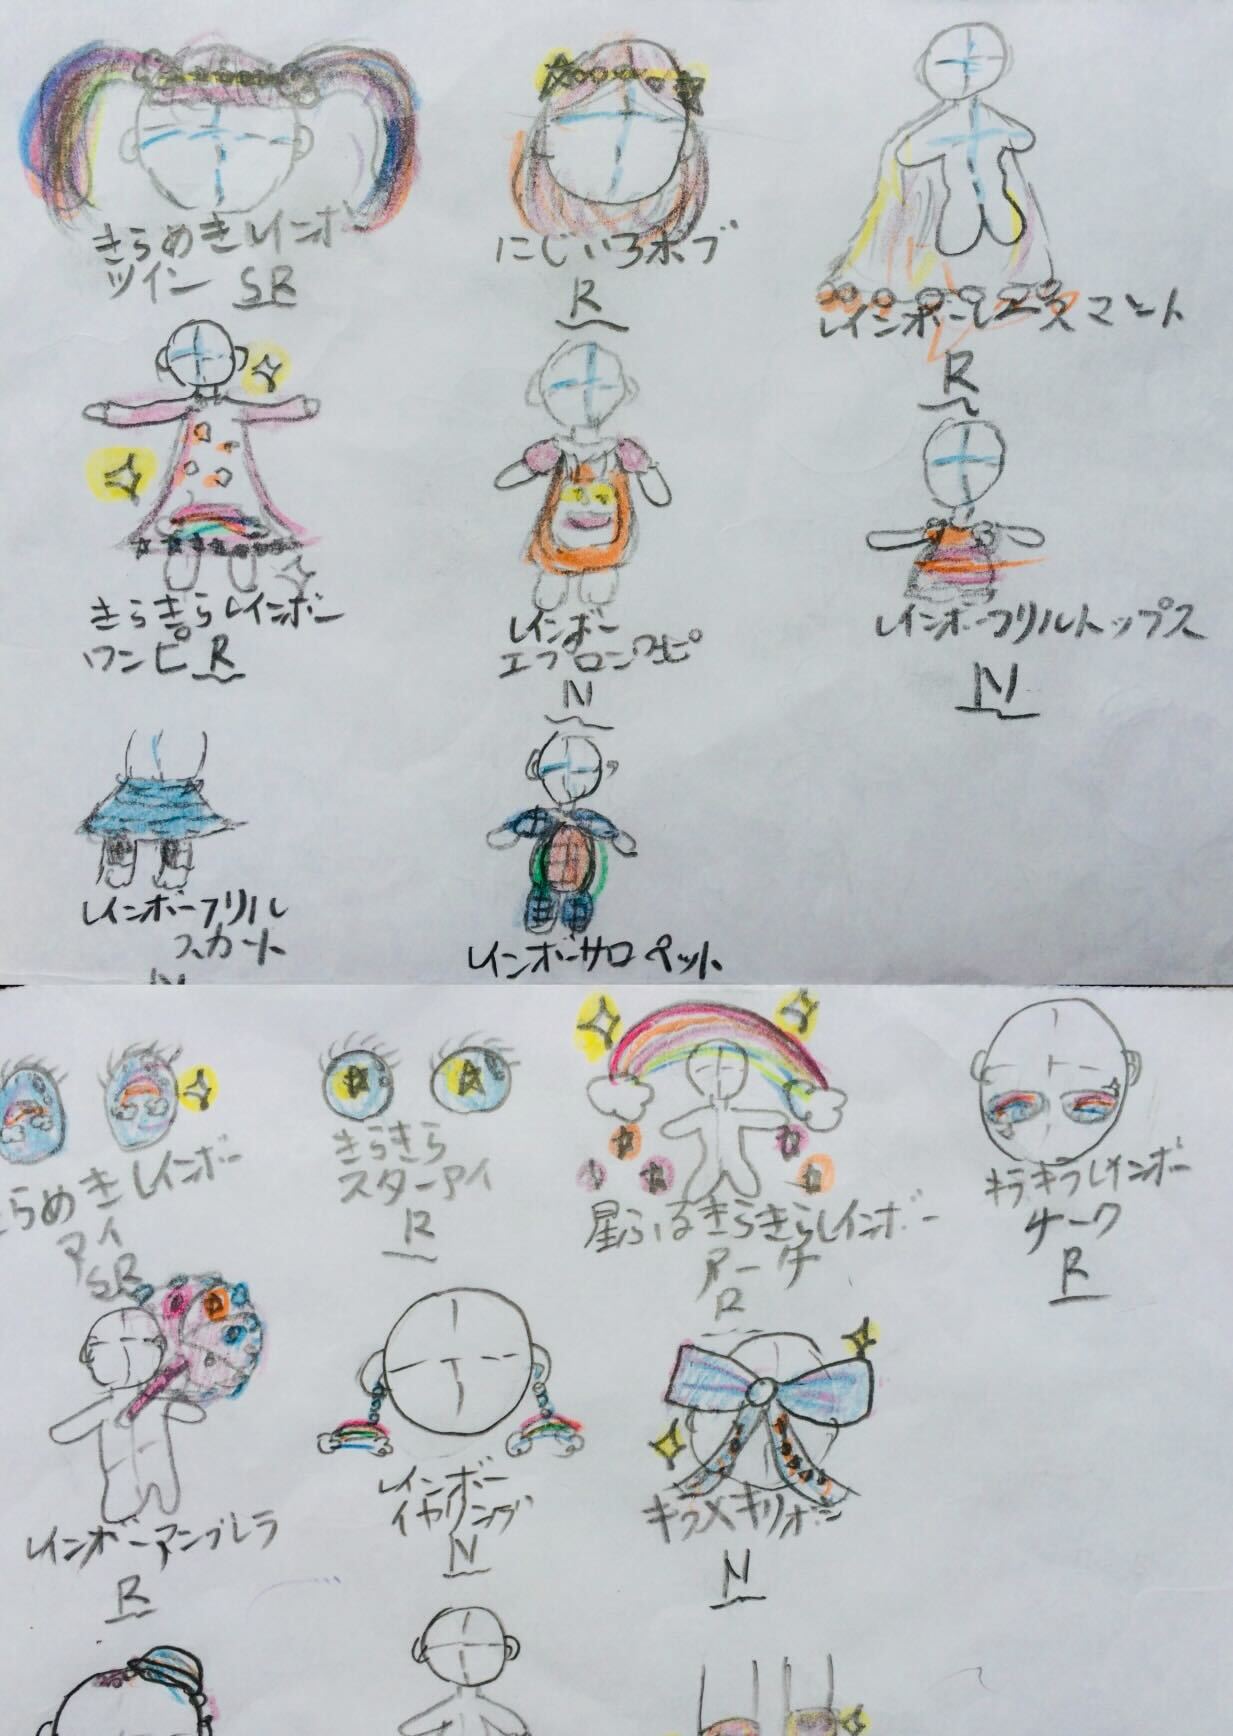 きらめきレインボ
ツイン SR
にじいろボブ
R
レインボーレースマント
R
きらきらレインボー
ワンピ R
レインボー
エプロンワンピ
N
レインボーフリルトップス
N
レインボーフリル
スカート
N
レインボーサロペット
らめきレインボー
アイ
SR
きらきら
スターアイ
R
星ふるきらきらレインボー
アーチ
R
キラキラレインボー
チーク
R
レインボーアンブレラ
R
レインボー
イヤリング
N
キラメキリボン
N